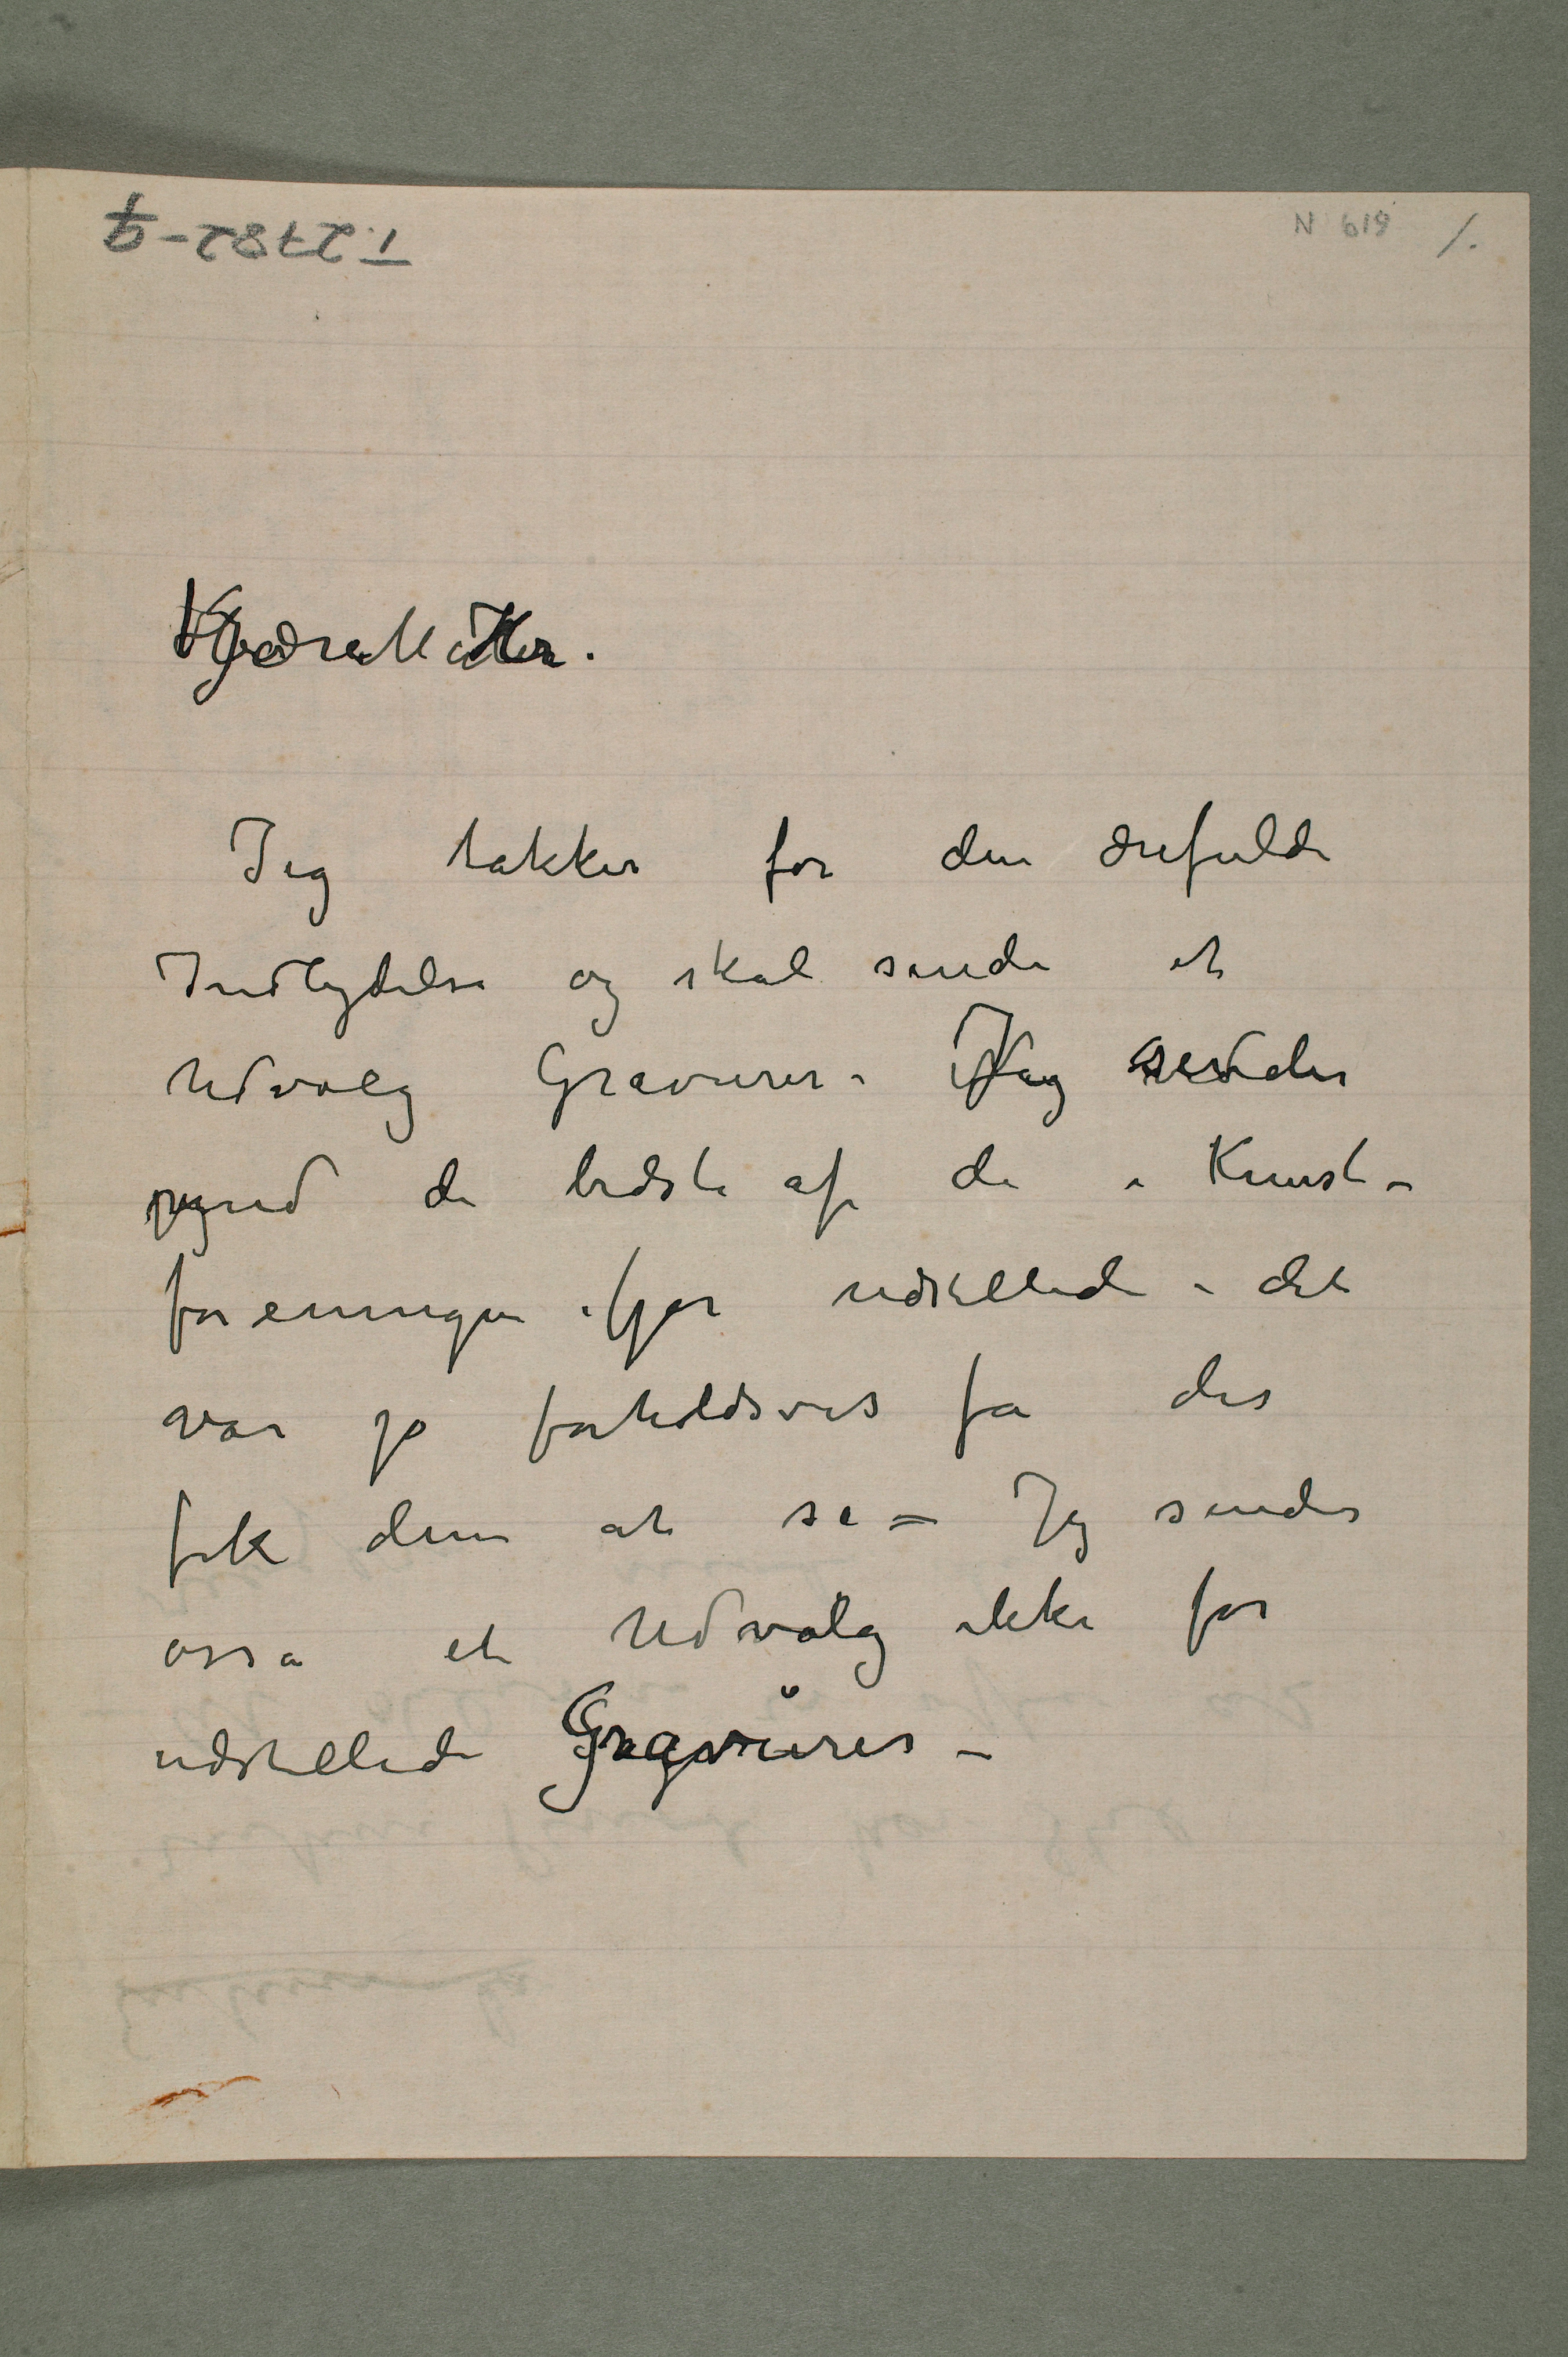 T.2782-a
N 619 1.
Kjære Møller.
Jeg takker for den ærefulde
Indbydelse og skal sende et
Udvalg Gravurer – Jeg sender
med de bedste af de i Kunst-
foreningen ifjor udstillede – det
var jo forholdsvis få der
fik dem at se – Jeg sender
osså et Udvalg ikke før
udstillede Gravürer –